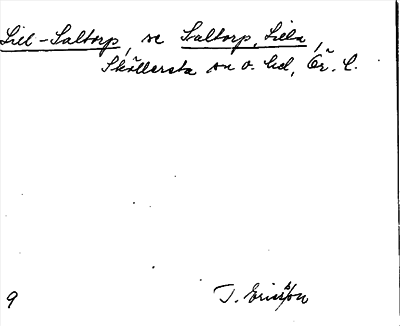 Lill-Saltorp, se Saltorp, Lilla,
Sköllersta sn o. hd, Ör. l.
9 J. Ericsson